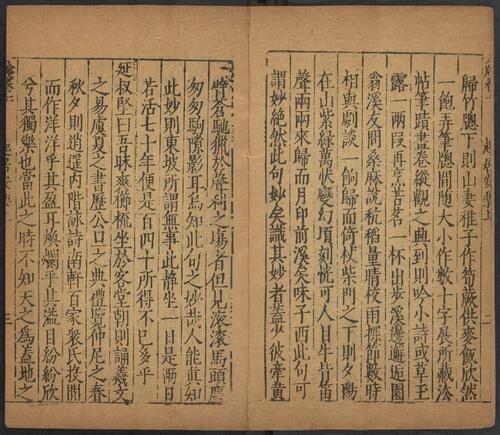 歸竹牕下則山妻稚子作筍蕨供麥飯欣然
一飽弄筆牕間隨大小作數十字展所藏法
帖筆蹟畫卷縱觀之興到則吟小詩或草玉
露一兩段再亨苦茗一杯出步溪邊邂逅園
翁溪友問桑麻說秔稻量晴校雨探節數時
相與劇談一餉歸而倚杖柴門之下則夕陽
在山紫綠萬狀變幻頃刻恍可人目牛背笛
聲兩兩來歸而月印前溪矣味子西此句可
謂妙絕然此句妙矣識其妙者蓋少彼牽黃
二
臂蒼馳獵於聲利之場者但見滾滾馬頭塵
匆匆駒隙影耳烏知此句之妙哉人能眞知
此妙則東坡所謂無事此靜坐一日是兩日
若活七十年便是百四十所得不已多乎
延叔堅曰吾昧爽櫛梳坐於客堂朝則誦羲文
之易虞夏之書歷公旦之典禮覽仲尼之春
秋夕則逍遙內階詠詩南軒百家衆氏投閒
而作洋洋乎其盈耳煥爛乎其溢目紛紛欣
兮其獨樂也當此之時不知天之爲蓋地之
三